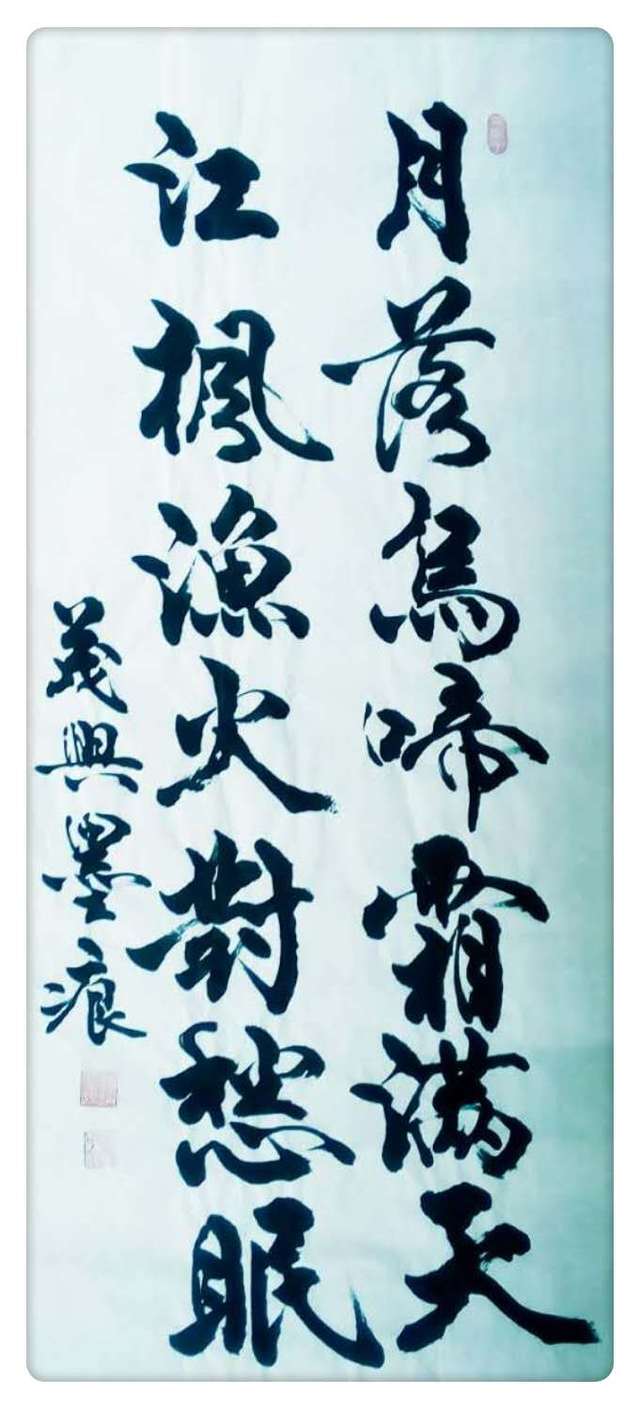 月落烏啼霜滿天
江楓漁火對愁眠
茂興墨痕